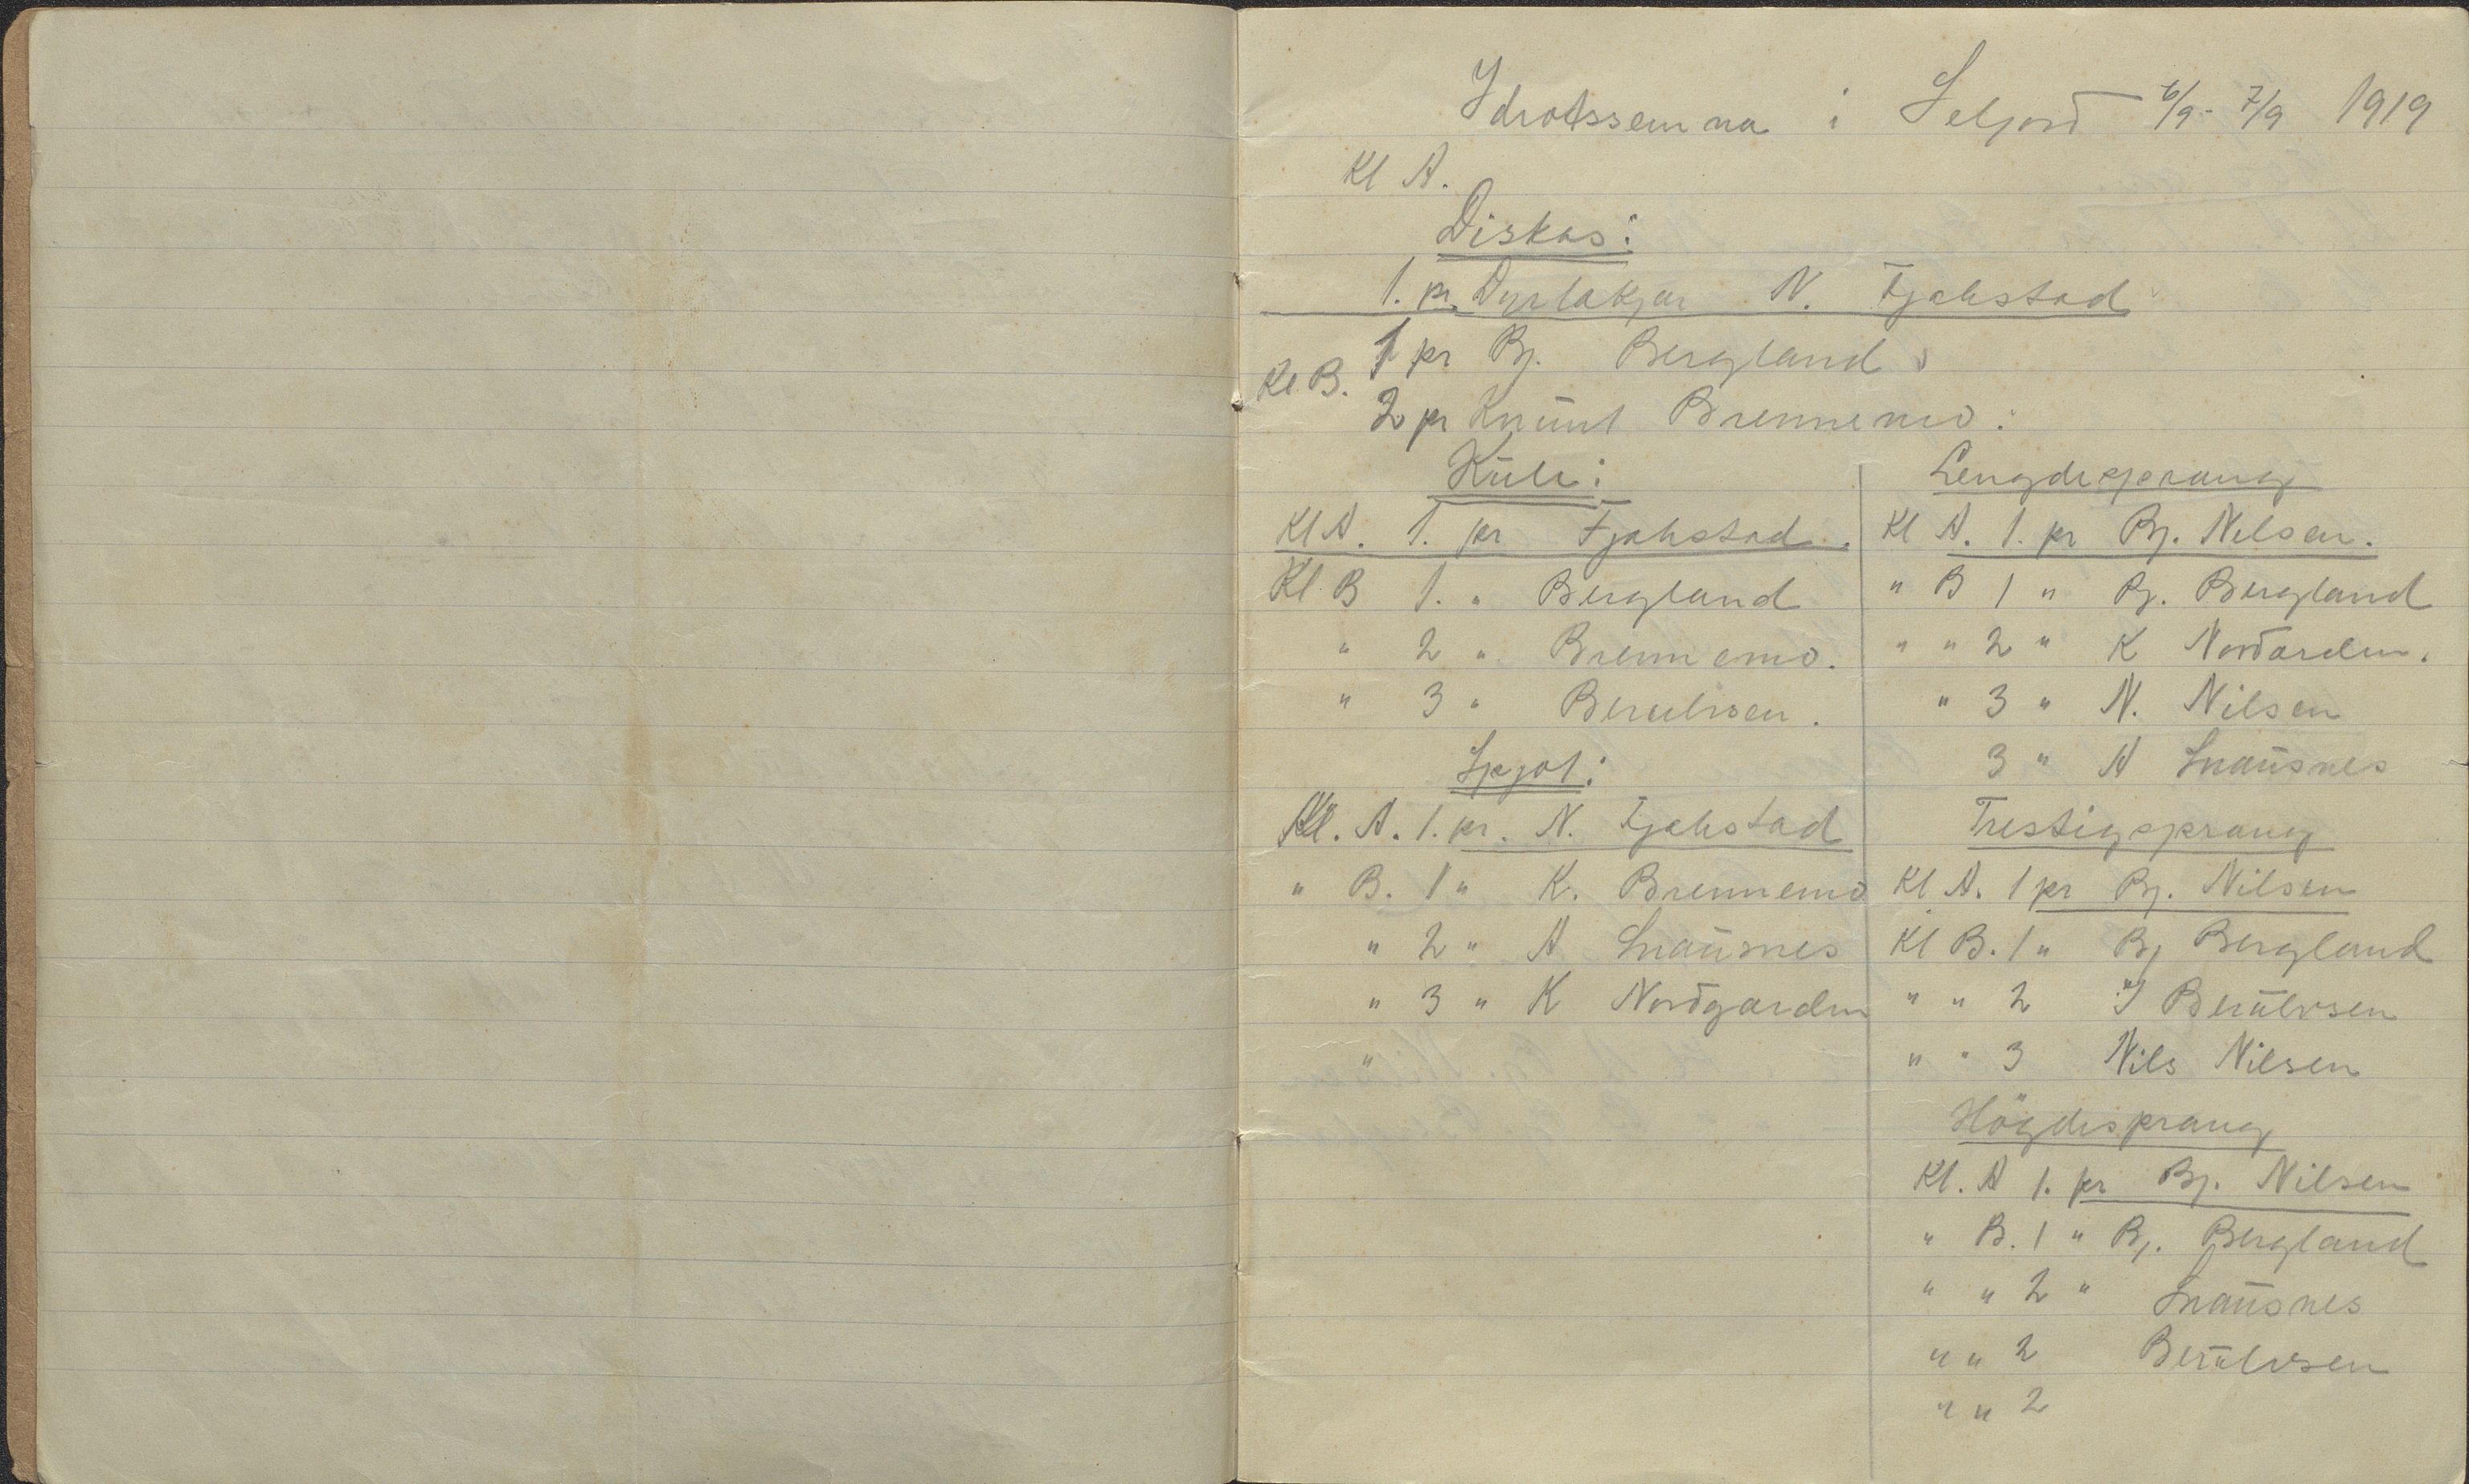 Idrotsstemna i Seljord 6/9 - 7/9 1919
Kl A.
Diskos:
1. pr. Dyrlækjar N. Fjeksstad
Kl. B. 1 pr Bj. Bergland
2 pr Knut Brennemo.
Kule:
Kl A. 1. pr
Kl. B 1. " Bergland
" 2 " Brennemo.
" 3 " Berulvsen.
Spjot:
Kl. A. 1. pr. N.
" B. 1 " K. Brennemo
" 2 " A Snausnes
" 3 " K Nordgarden
"
Lengdesprang
Kl A. 1. pr Bj. Nilsen.
" B 1 " Bj. Bergland
" " 2 " K Nordarden.
" 3 " N. Nilsen
3 " A Snausnes
Trestigsprang
Kl A. 1 pr Bj. Nilsen
Kl B. 1 " Bj Bergland
" " 2 " I Berulvsen
" " 3 Nils Nilsen
Högdesprang
Kl. A 1. pr Bj. Nilsen
" B. 1 " Bj. Bergland
" " 2 " Snausnes
" " 2 Berulvsen
" " 2